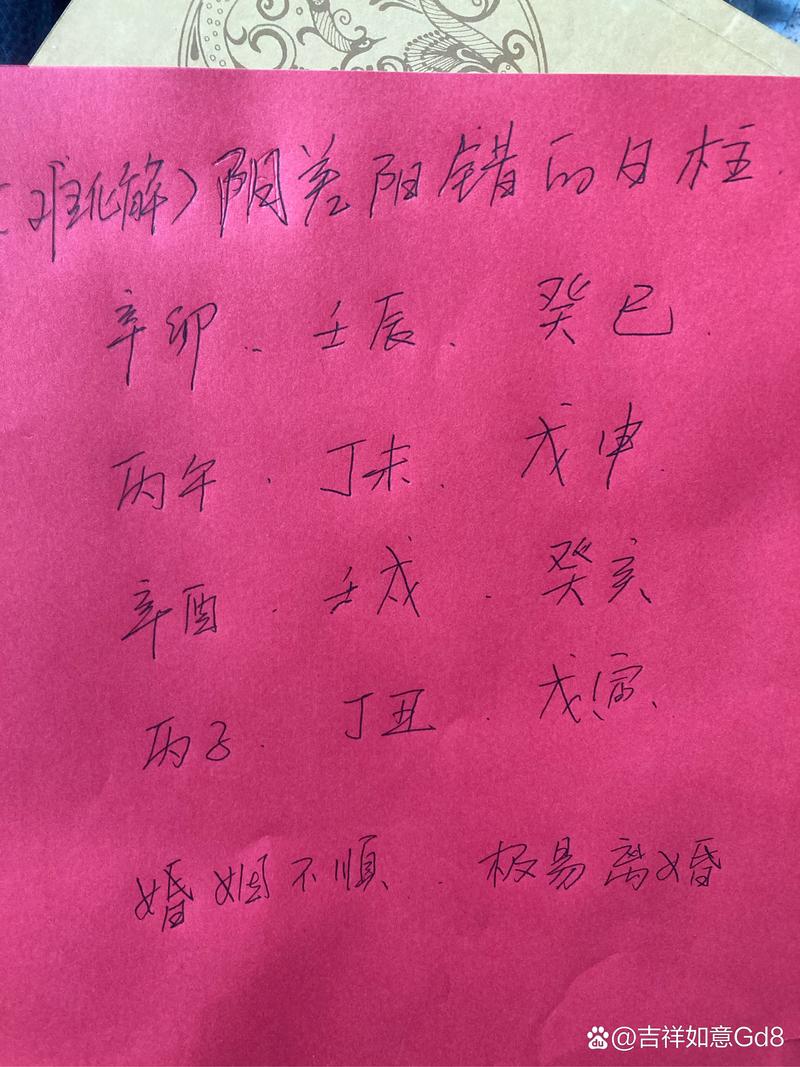 (难化解)阴差阳错的日柱.
辛卯. 壬辰. 癸巳.
丙午. 丁未. 戊申.
辛酉. 壬戌. 癸亥
丙子. 丁丑. 戊寅.
婚姻不顺. 极易离婚
du @吉祥如意Gd8